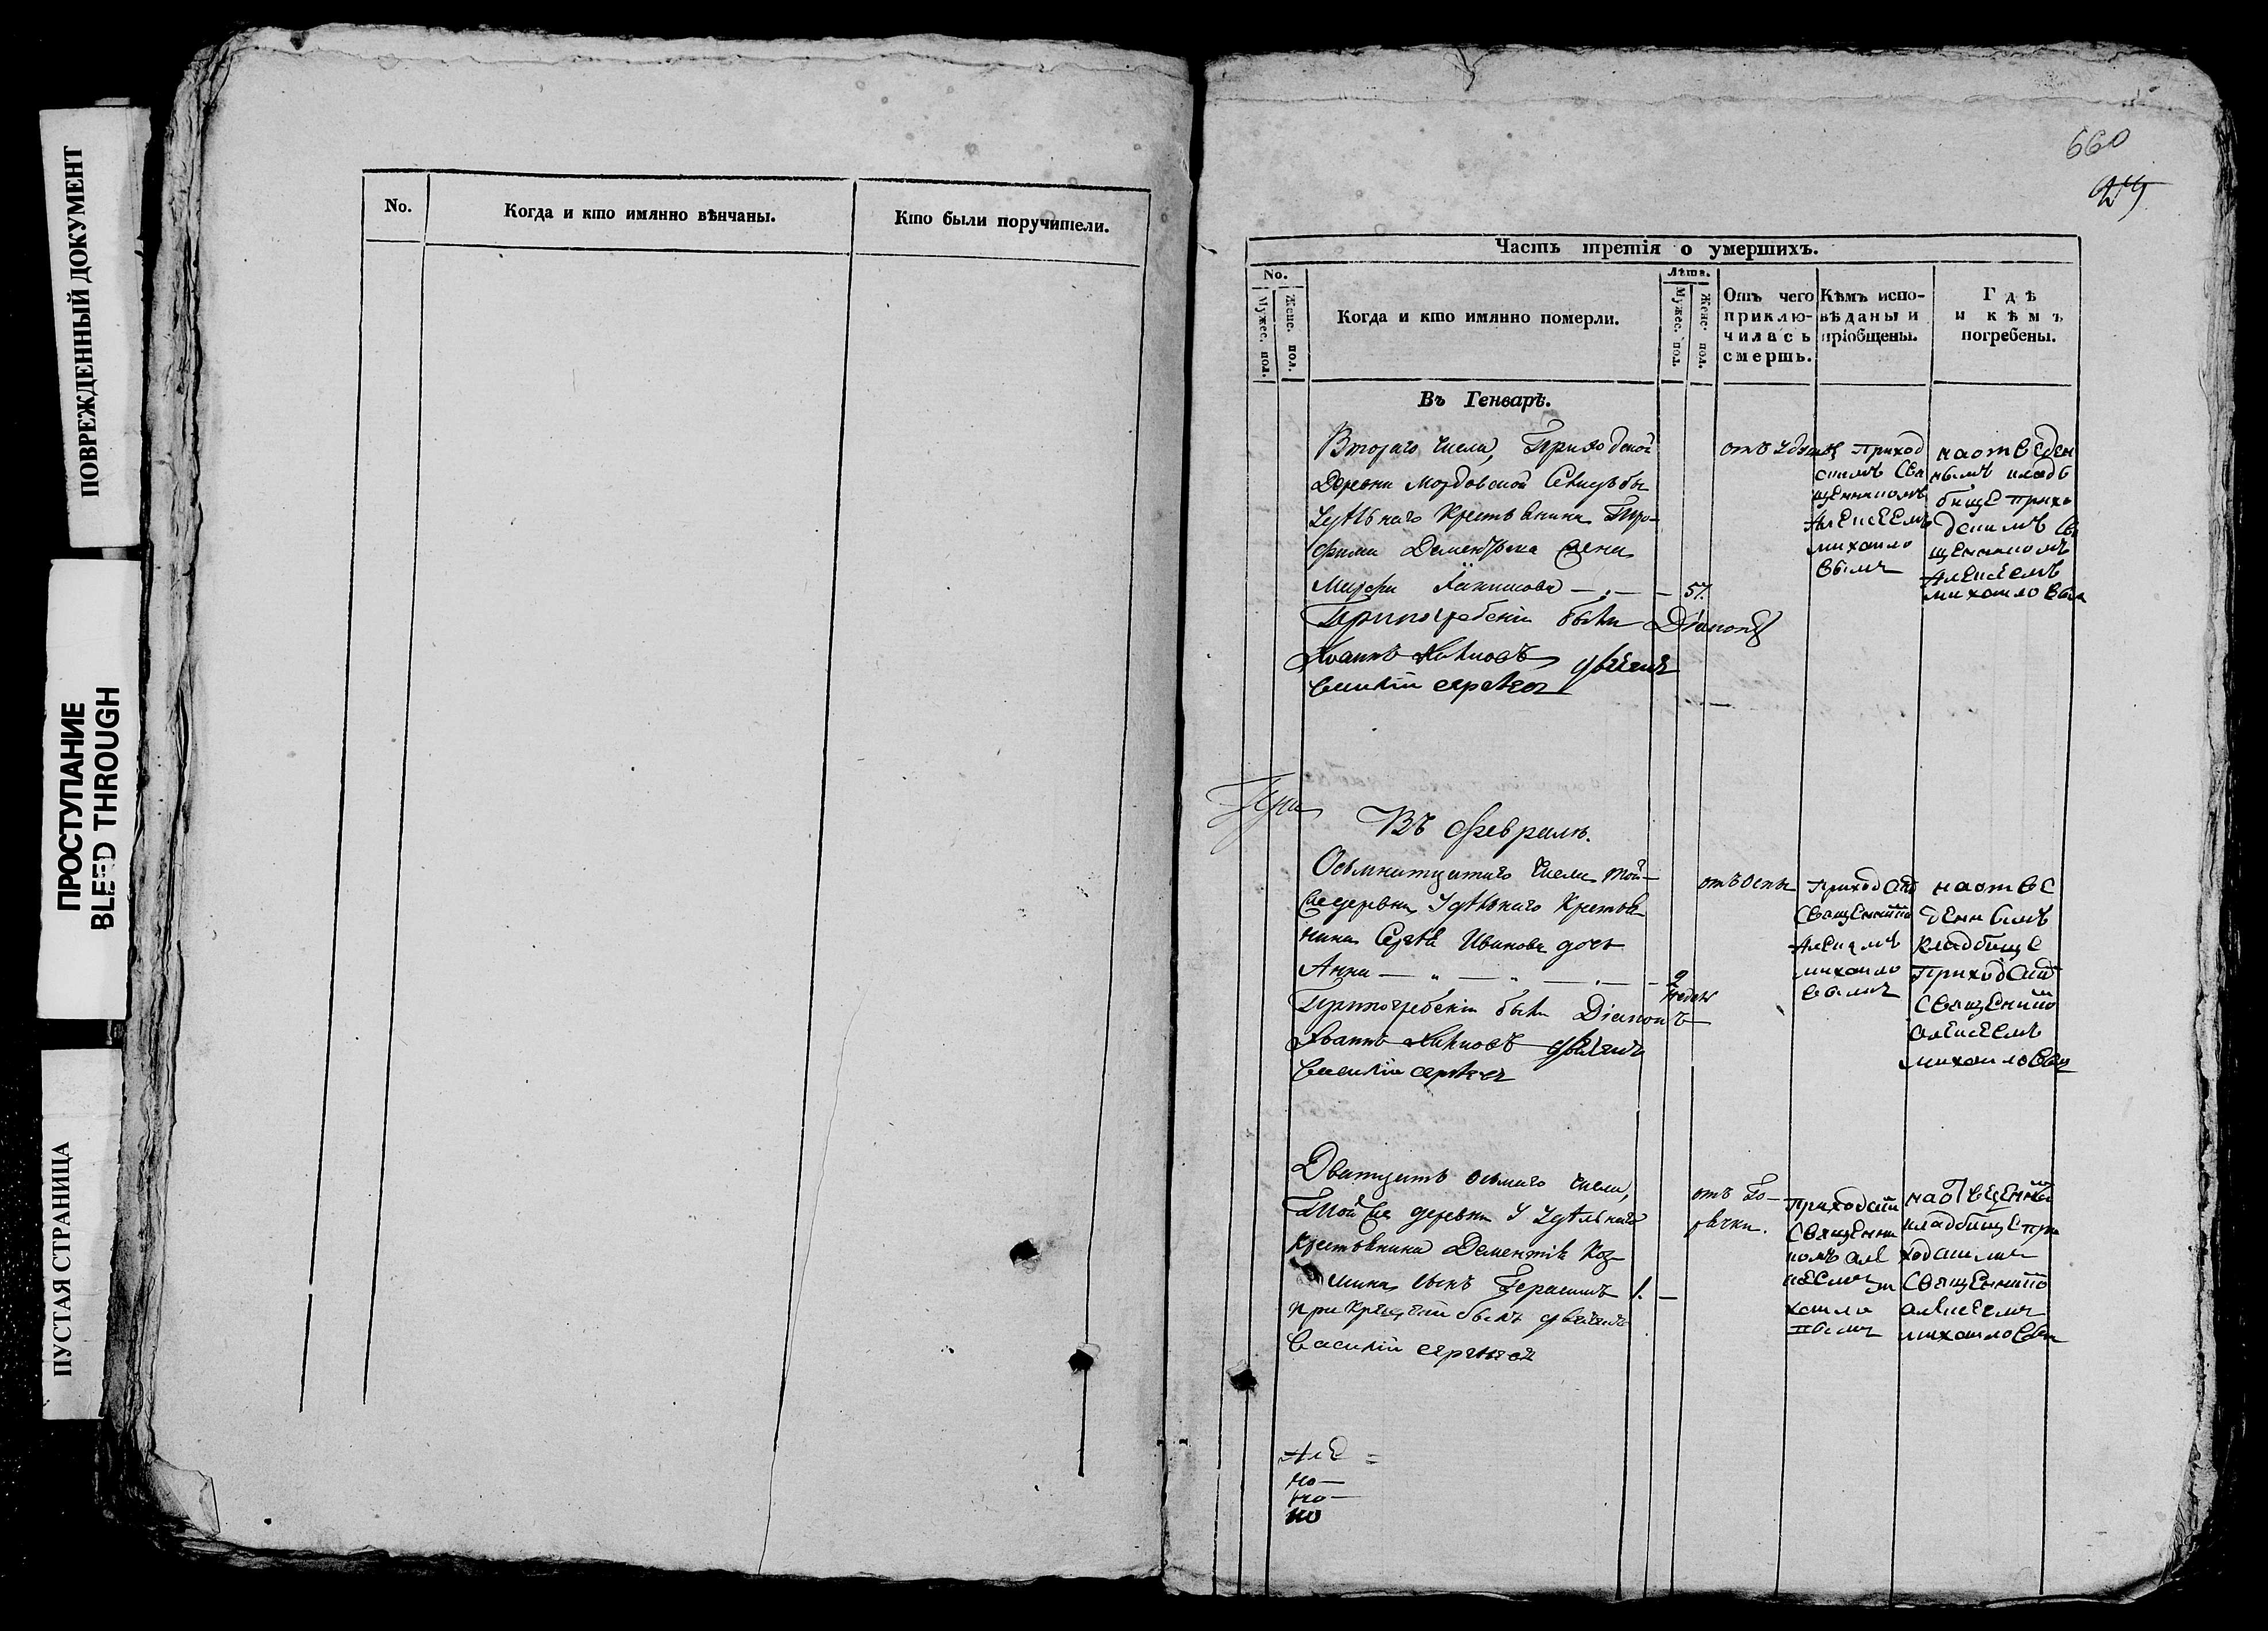 ПОВРЕЖДЕННЫЙ ДОКУМЕНТ
ПРОСТУПАНИЕ
BLEED THROUGH
ПУСТАЯ СТРАНИЦА
No.
Когда и кто имянно вѣнчаны.
Кто были поручители.
660
Часть третія о умершихъ.
No.
Мужес. пол.
Женс. пол.
Когда и кто имянно померли.
Лѣта.
Мужес. пол.
Женс. пол.
Отъ чего
приклю-
чилась
смерть.
Кѣмъ испо-
вѣданы и
пріобщены.
Гдѣ
и кѣмъ
погребены.
Въ Генварѣ.
Втораго числа, Приходской
Деревни Мордовской
Удѣльнаго Крестьянина Тро-
фима Дементьева жена
Марфа 57.
При погребеніи были Діаконъ
Іоаннъ
Василій
Приход
скимъ Свя
щенникомъ
Алексеемъ
михайло
вымъ
на отведен
номъ кладб
бище прихо
дскимъ Свя
щенникомъ
Алексеемъ
михайловым
При
Въ феврале.
Осьмнатцатаго числа той-
же деревни Удѣльнаго Крестья
нина Сергѣя Иванова дочь
Анна 2
недель
При погребеніи были Діаконъ
Іоаннъ
Василій
отъ оспы
Приходски
Священнико
Алексемъ
михайло
вымъ
на отве
денномъ
кладбище
Приходским
Священнико
алексеемъ
михайловым
Дватцать осьмаго числа,
Той же деревни Удѣльнаго
Крестьянина Дементія Коз-
мина сынъ Герасимъ 1. —
при крещеніи былъ
Василій
отъ Го-
рячки.
Приходским
Священни
комъ але
ксеемъ ми
хайло
вымъ
кладбище при
ходскимъ
Священнико
алексеемъ
михайловым
Але =
но —
но —
но